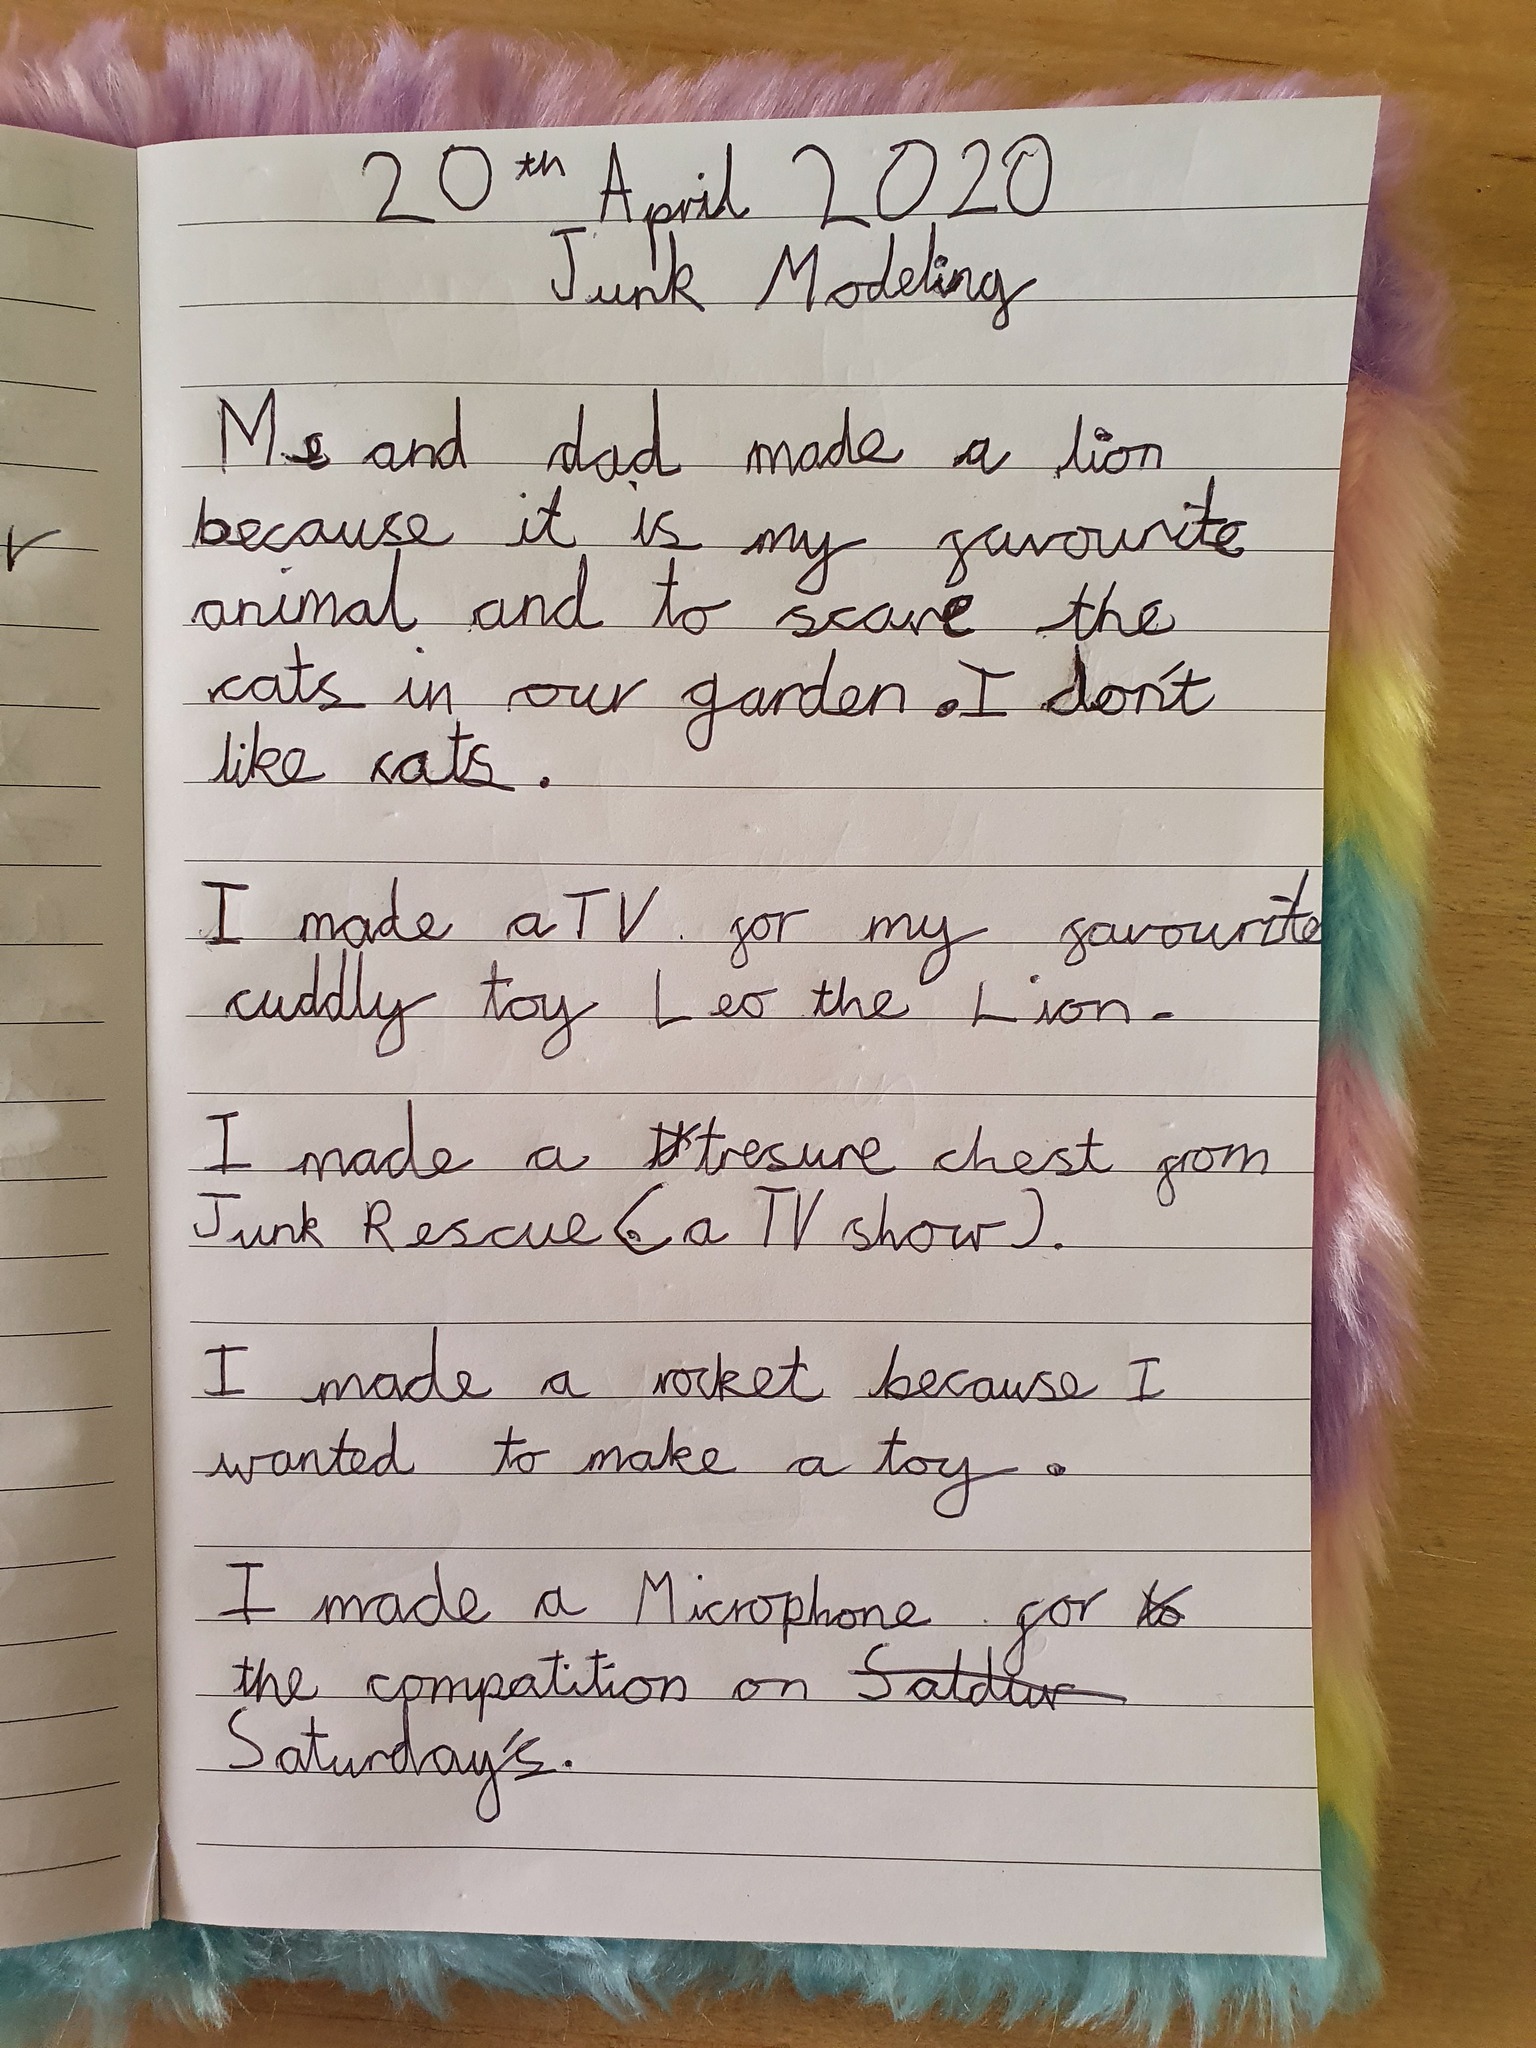 20th April 2020
Junk Modeling
Me and dad made a lion
because it is my favourite
animal and to scare the
cats in our garden. I don't
like cats.
I made a TV for my favourite
cuddly toy Leo the Lion.
I made a tresure chest from
Junk Rescue (a TV show).
I made a rocket because I
wanted to make a toy.
I made a Microphone for to
the compatition on Saldur
Saturday's.
r